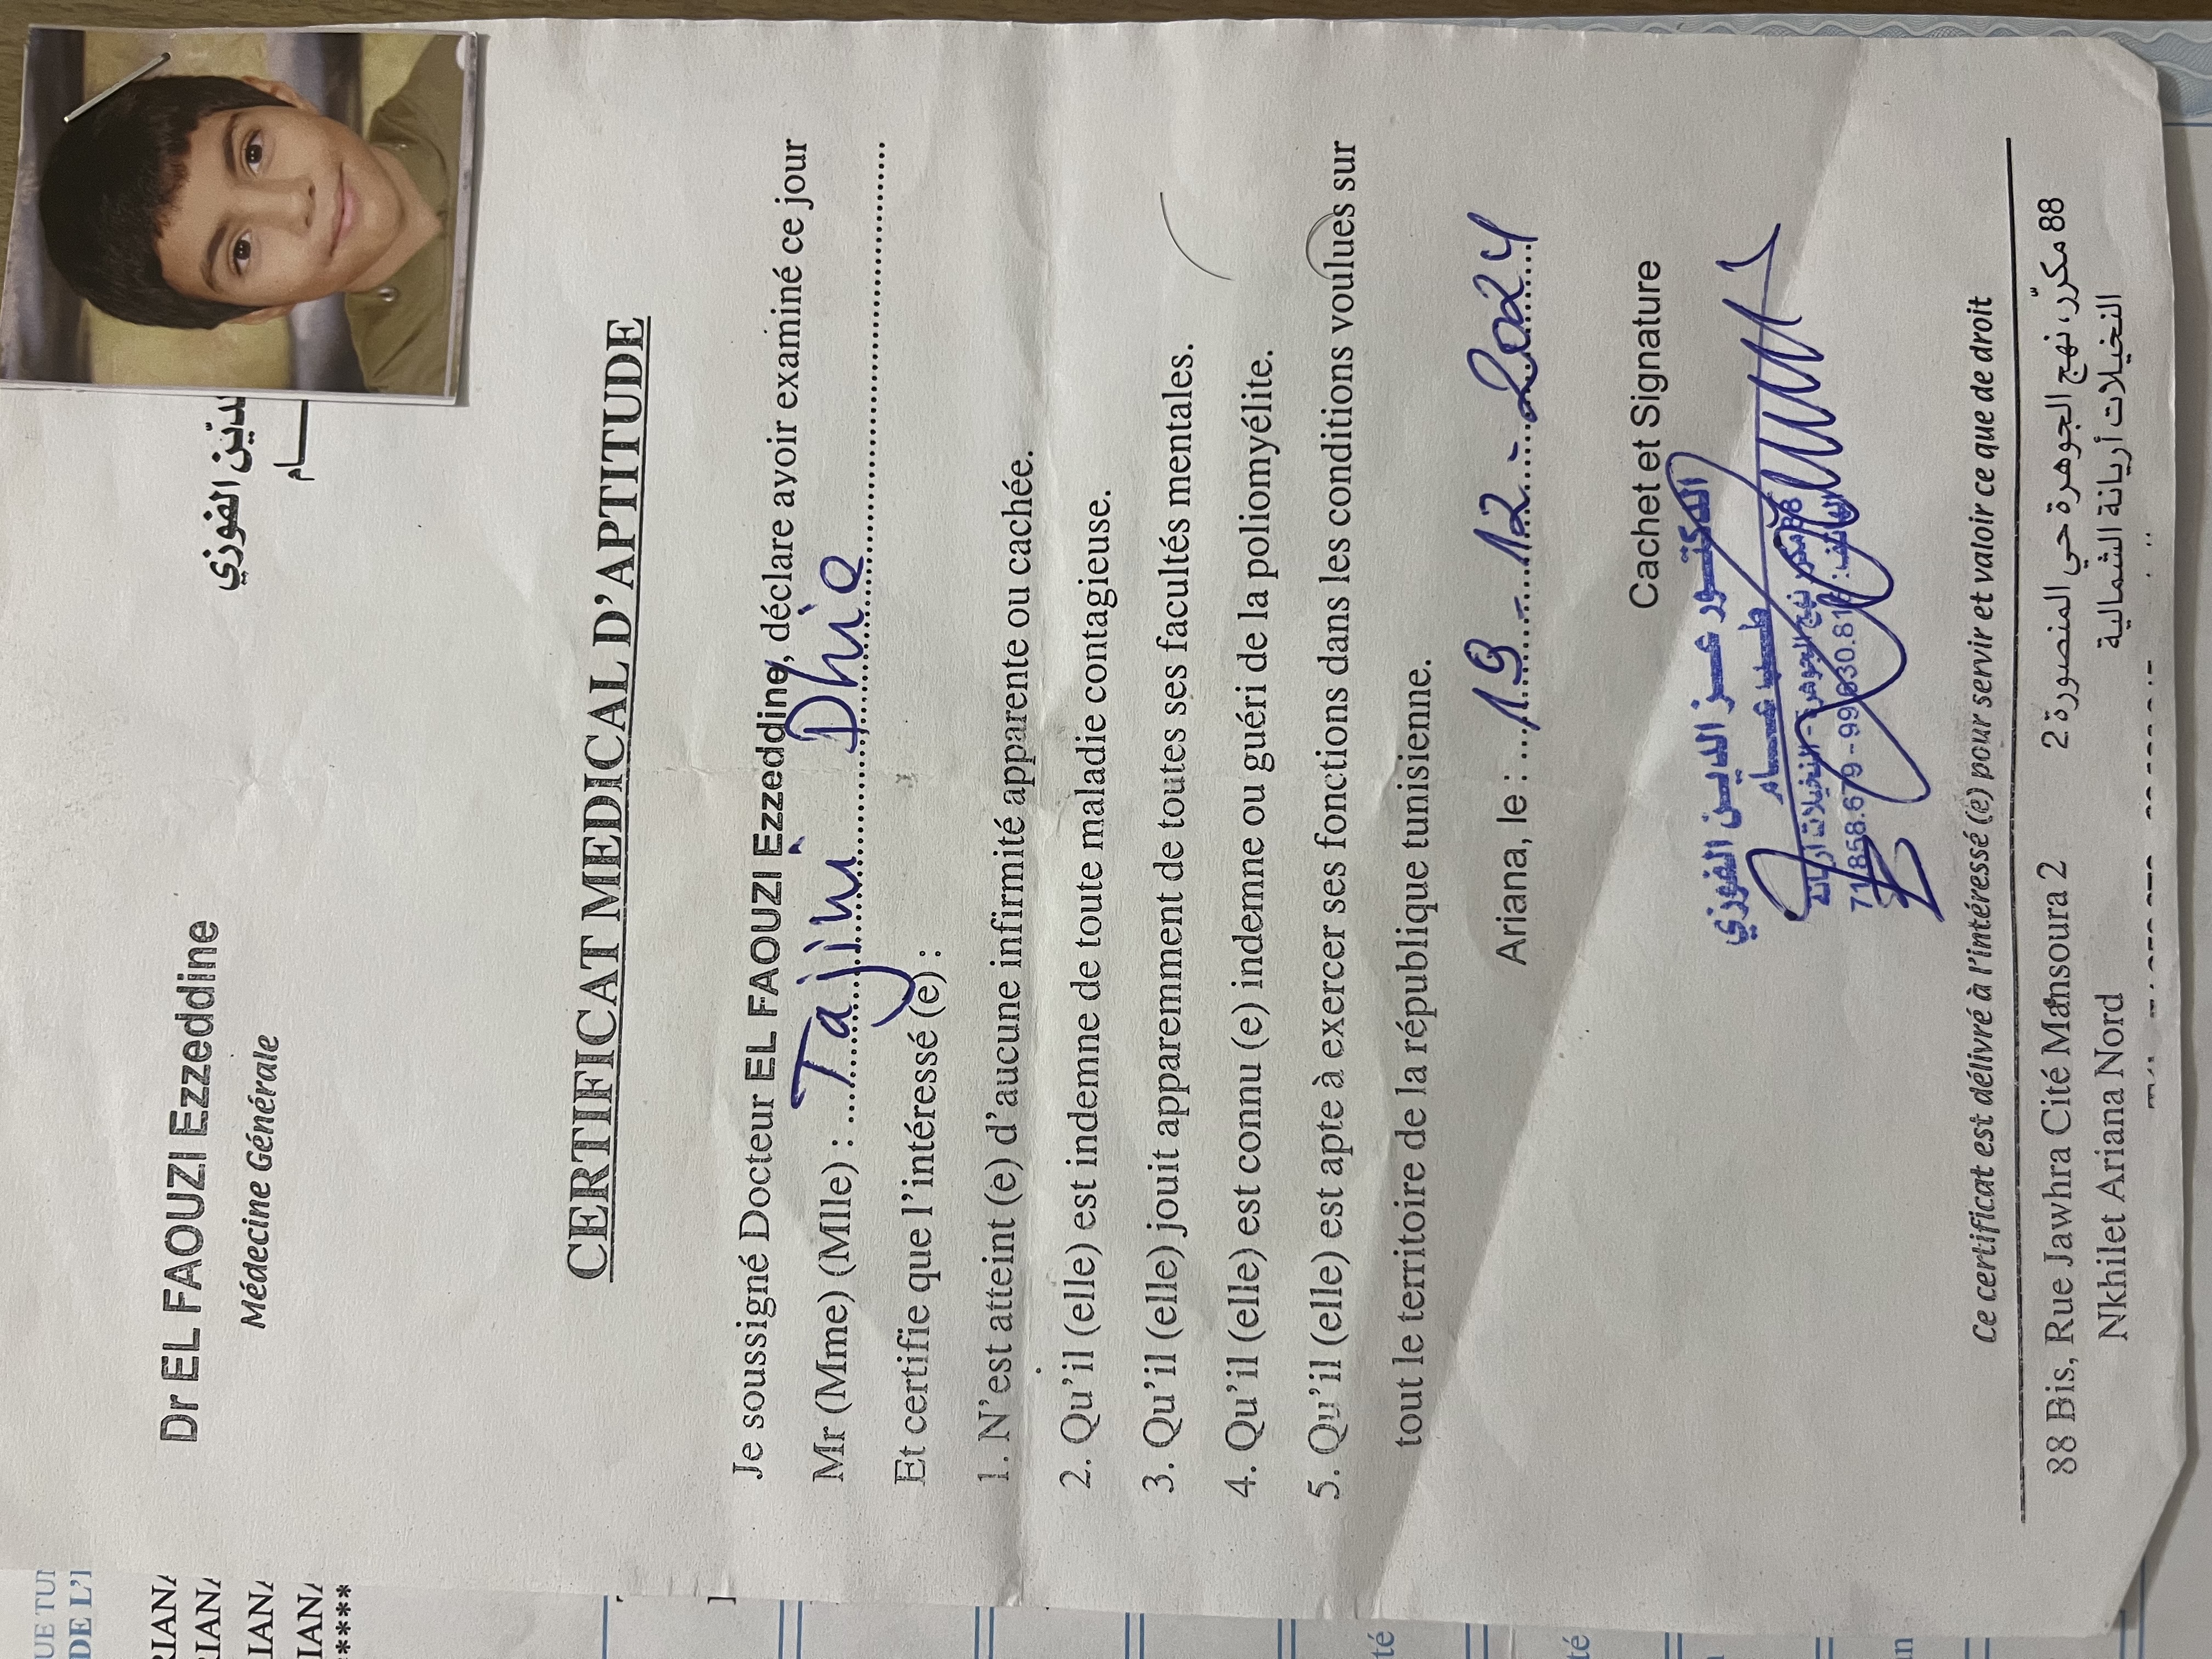 Dr EL FAOUZI Ezzeddine
Médecine Générale
الفوزي
CERTIFICAT MEDICAL D'APTITUDE
Je soussigné Docteur EL FAOUZI Ezzeddine, déclare avoir examiné ce jour
Mr (Mme) (Mlle) : Tajini Dhia
Et certifie que l'intéressé (e) :
1. N'est atteint (e) d'aucune infirmité apparente ou cachée.
2. Qu'il (elle) est indemne de toute maladie contagieuse.
3. Qu'il (elle) jouit apparemment de toutes ses facultés mentales.
4. Qu'il (elle) est connu (e) indemne ou guéri de la poliomyélite.
5. Qu'il (elle) est apte à exercer ses fonctions dans les conditions voulues sur
tout le territoire de la république tunisienne.
Ariana, le : 19-12-2024
Cachet et Signature
الدكتور عز الدين الفوزي
طبيب عام
Ce certificat est délivré à l'intéressé (e) pour servir et valoir ce que de droit
88 Bis, Rue Jawhra Cité Mansoura 2
Nkhilet Ariana Nord
88 مكرّر، نهج الجوهرة حي المنصورة 2
النخيلات أريانة الشمالية